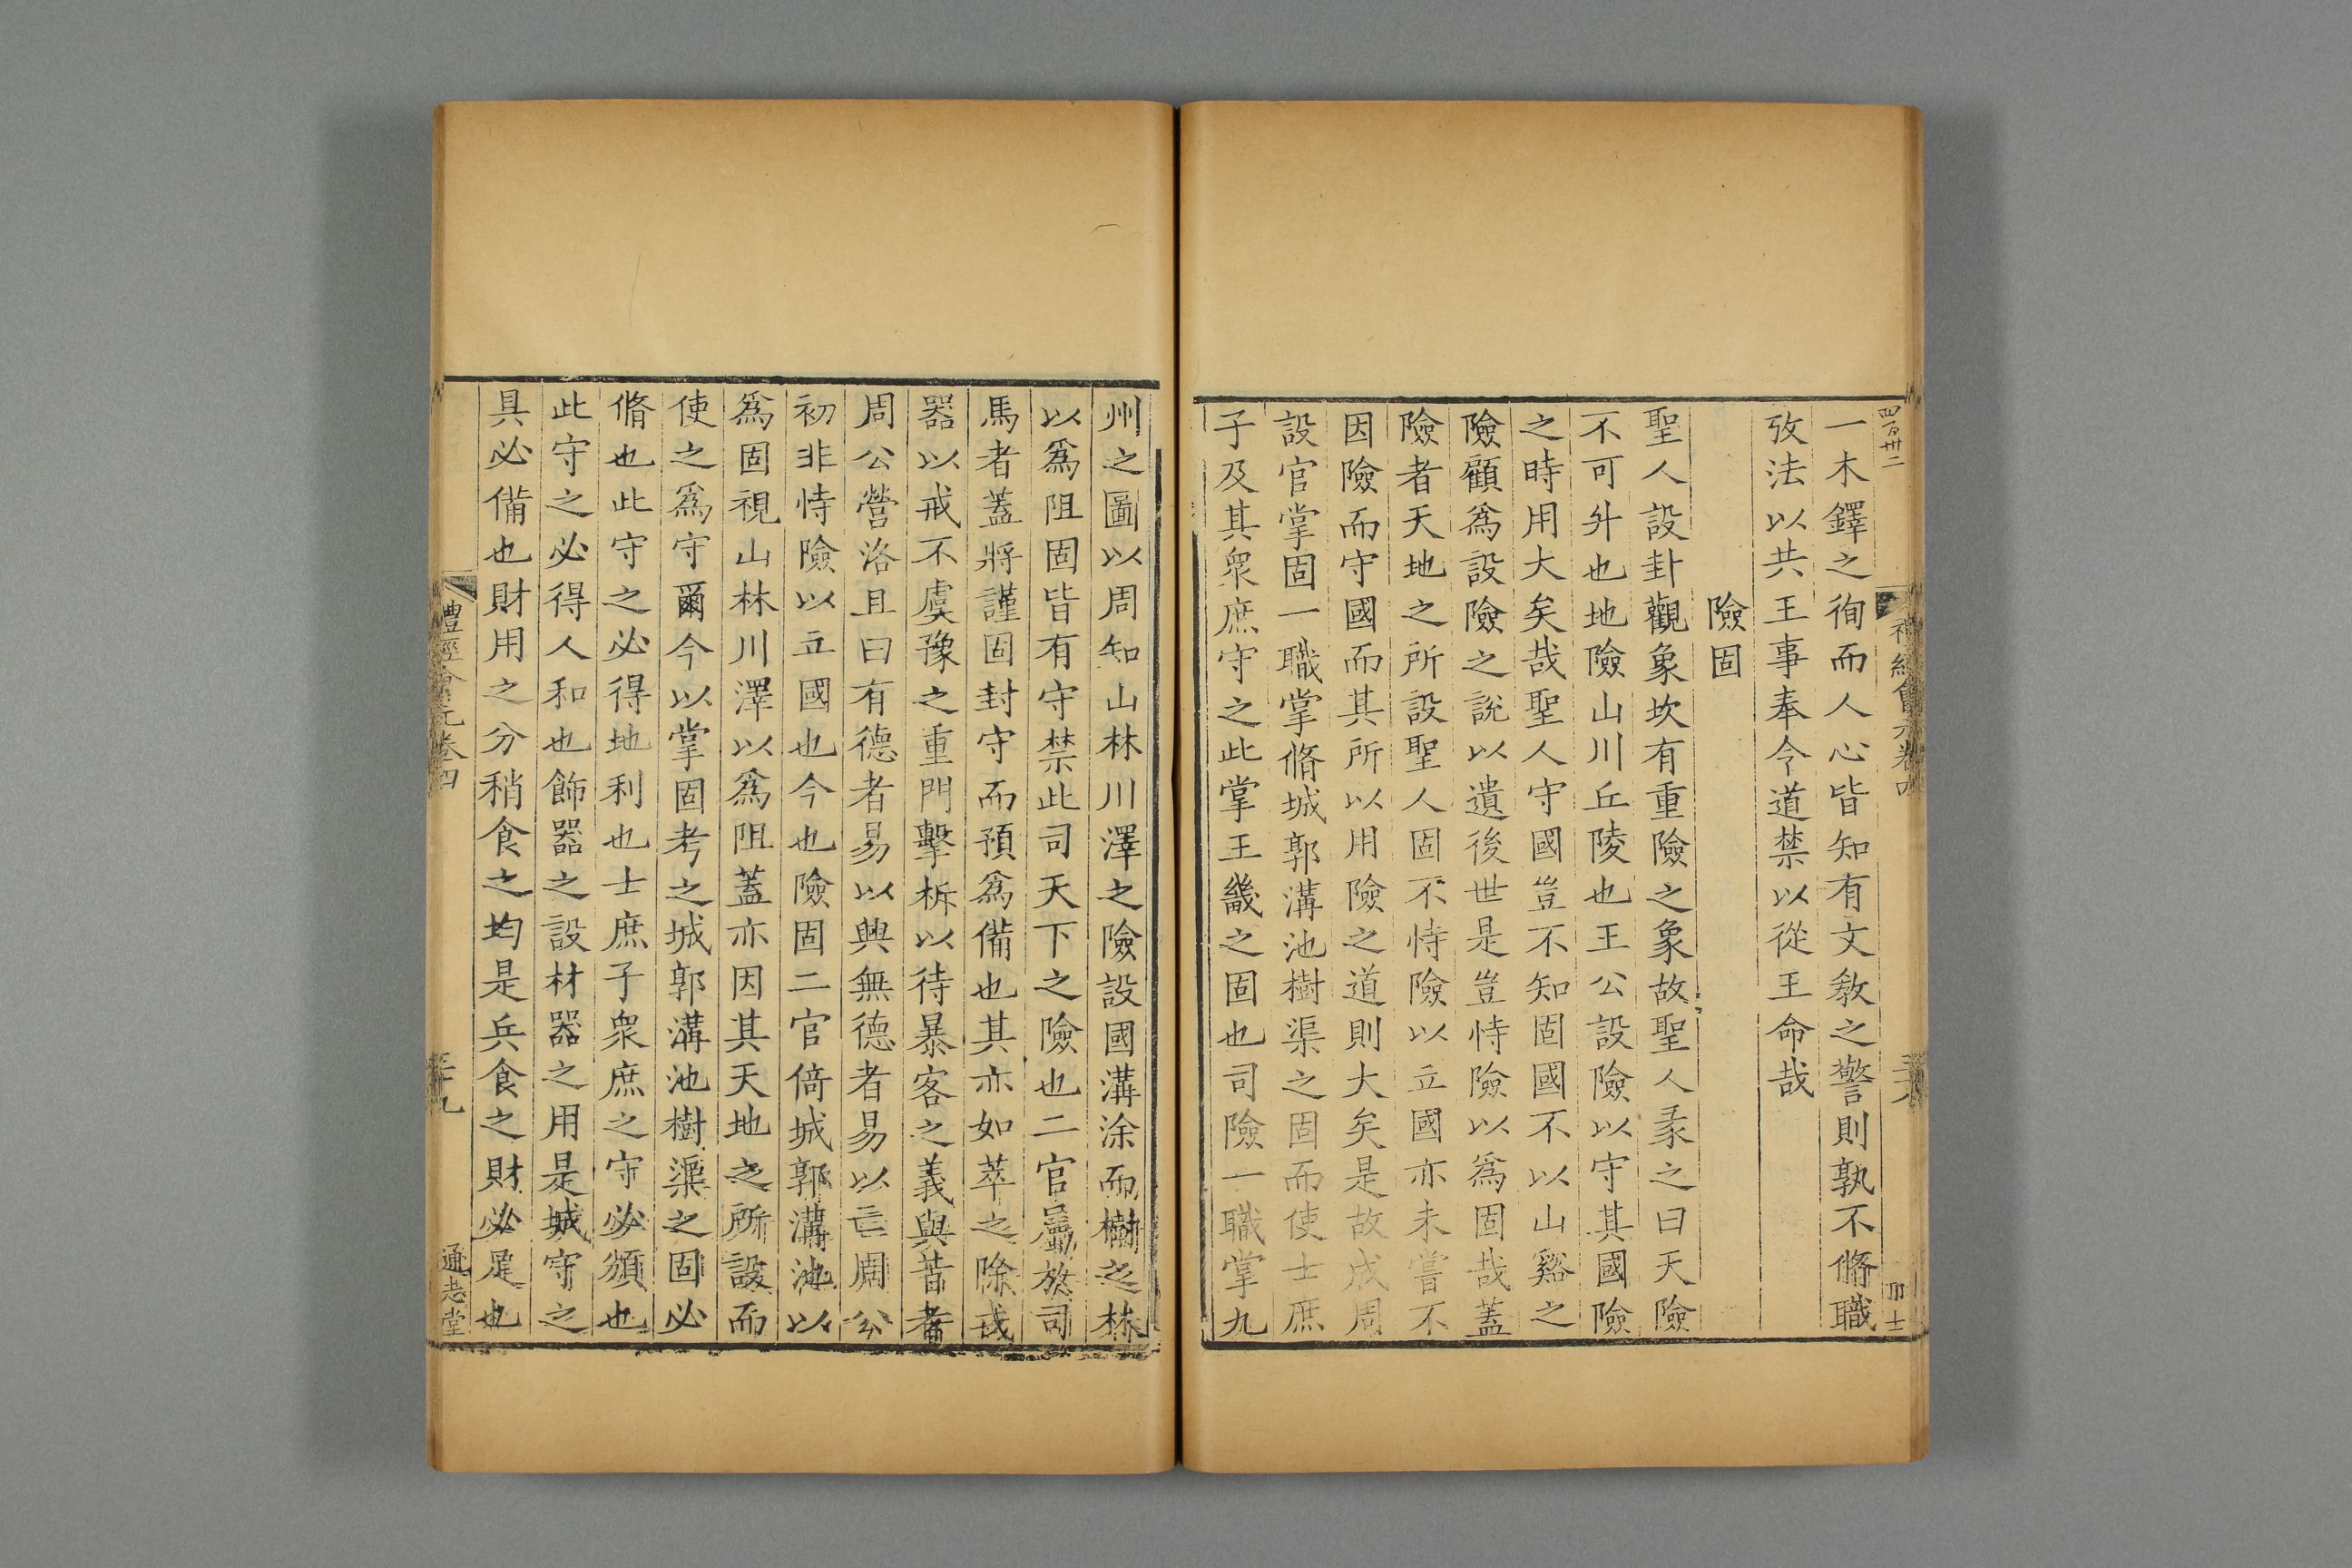 四百卅二
禮經會元卷四
三十八
一木鐸之徇而人心皆知有文敎之警則孰不脩職
攷法以共王事奉令道禁以從王命哉
險固
聖人設卦觀象坎有重險之象故聖人彖之曰天險
不可升也地險山川丘陵也王公設險以守其國險
之時用大矣哉聖人守國豈不知固國不以山谿之
險顧爲設險之說以遺後世是豈恃險以爲固哉蓋
險者天地之所設聖人固不恃險以立國亦未嘗不
因險而守國而其所以用險之道則大矣是故成周
設官掌固一職掌脩城郭溝池樹渠之固而使士庶
子及其衆庶守之此掌王畿之固也司險一職掌九
州之圖以周知山林川澤之險設國溝涂而樹之林
以爲阻固皆有守禁此司天下之險也二官屬於司
馬者蓋將謹固封守而預爲備也其亦如萃之除戎
器以戒不虞豫之重門擊柝以待暴客之義與昔者
周公營洛且曰有德者易以興無德者易以亡周公
初非恃險以立國也今也險固二官倚城郭溝池以
爲固視山林川澤以爲阻蓋亦因其天地之所設而
使之爲守爾今以掌固考之城郭溝池樹渠之固必
脩也此守之必得地利也士庶子衆庶之守必頒也
此守之必得人和也飾器之設材器之用是城守之
具必備也財用之分稍食之均是兵食之財必足也
禮經會元卷四
三十九
通志堂